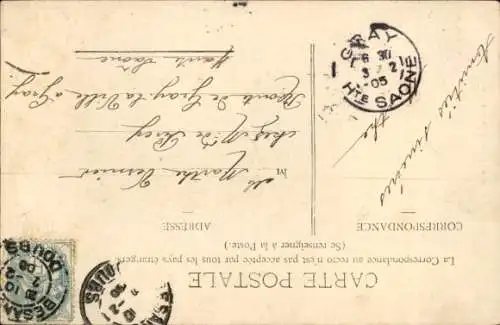 CARTE POSTALE
La Correspondance au recto n'est pas acceptée par tous les pays étrangers.
(Se renseigner à la Poste)
CORRESPONDANCE
ADRESSE
Amitiés sincères
M
Marthe Vernier
chez Mr de
Route de Gray-la-Ville à Gray
Haute Saône
GRAY
6 30
3 2
05
HTE SAONE
BESANÇ
DOUBS
10
2
05
DOUBS